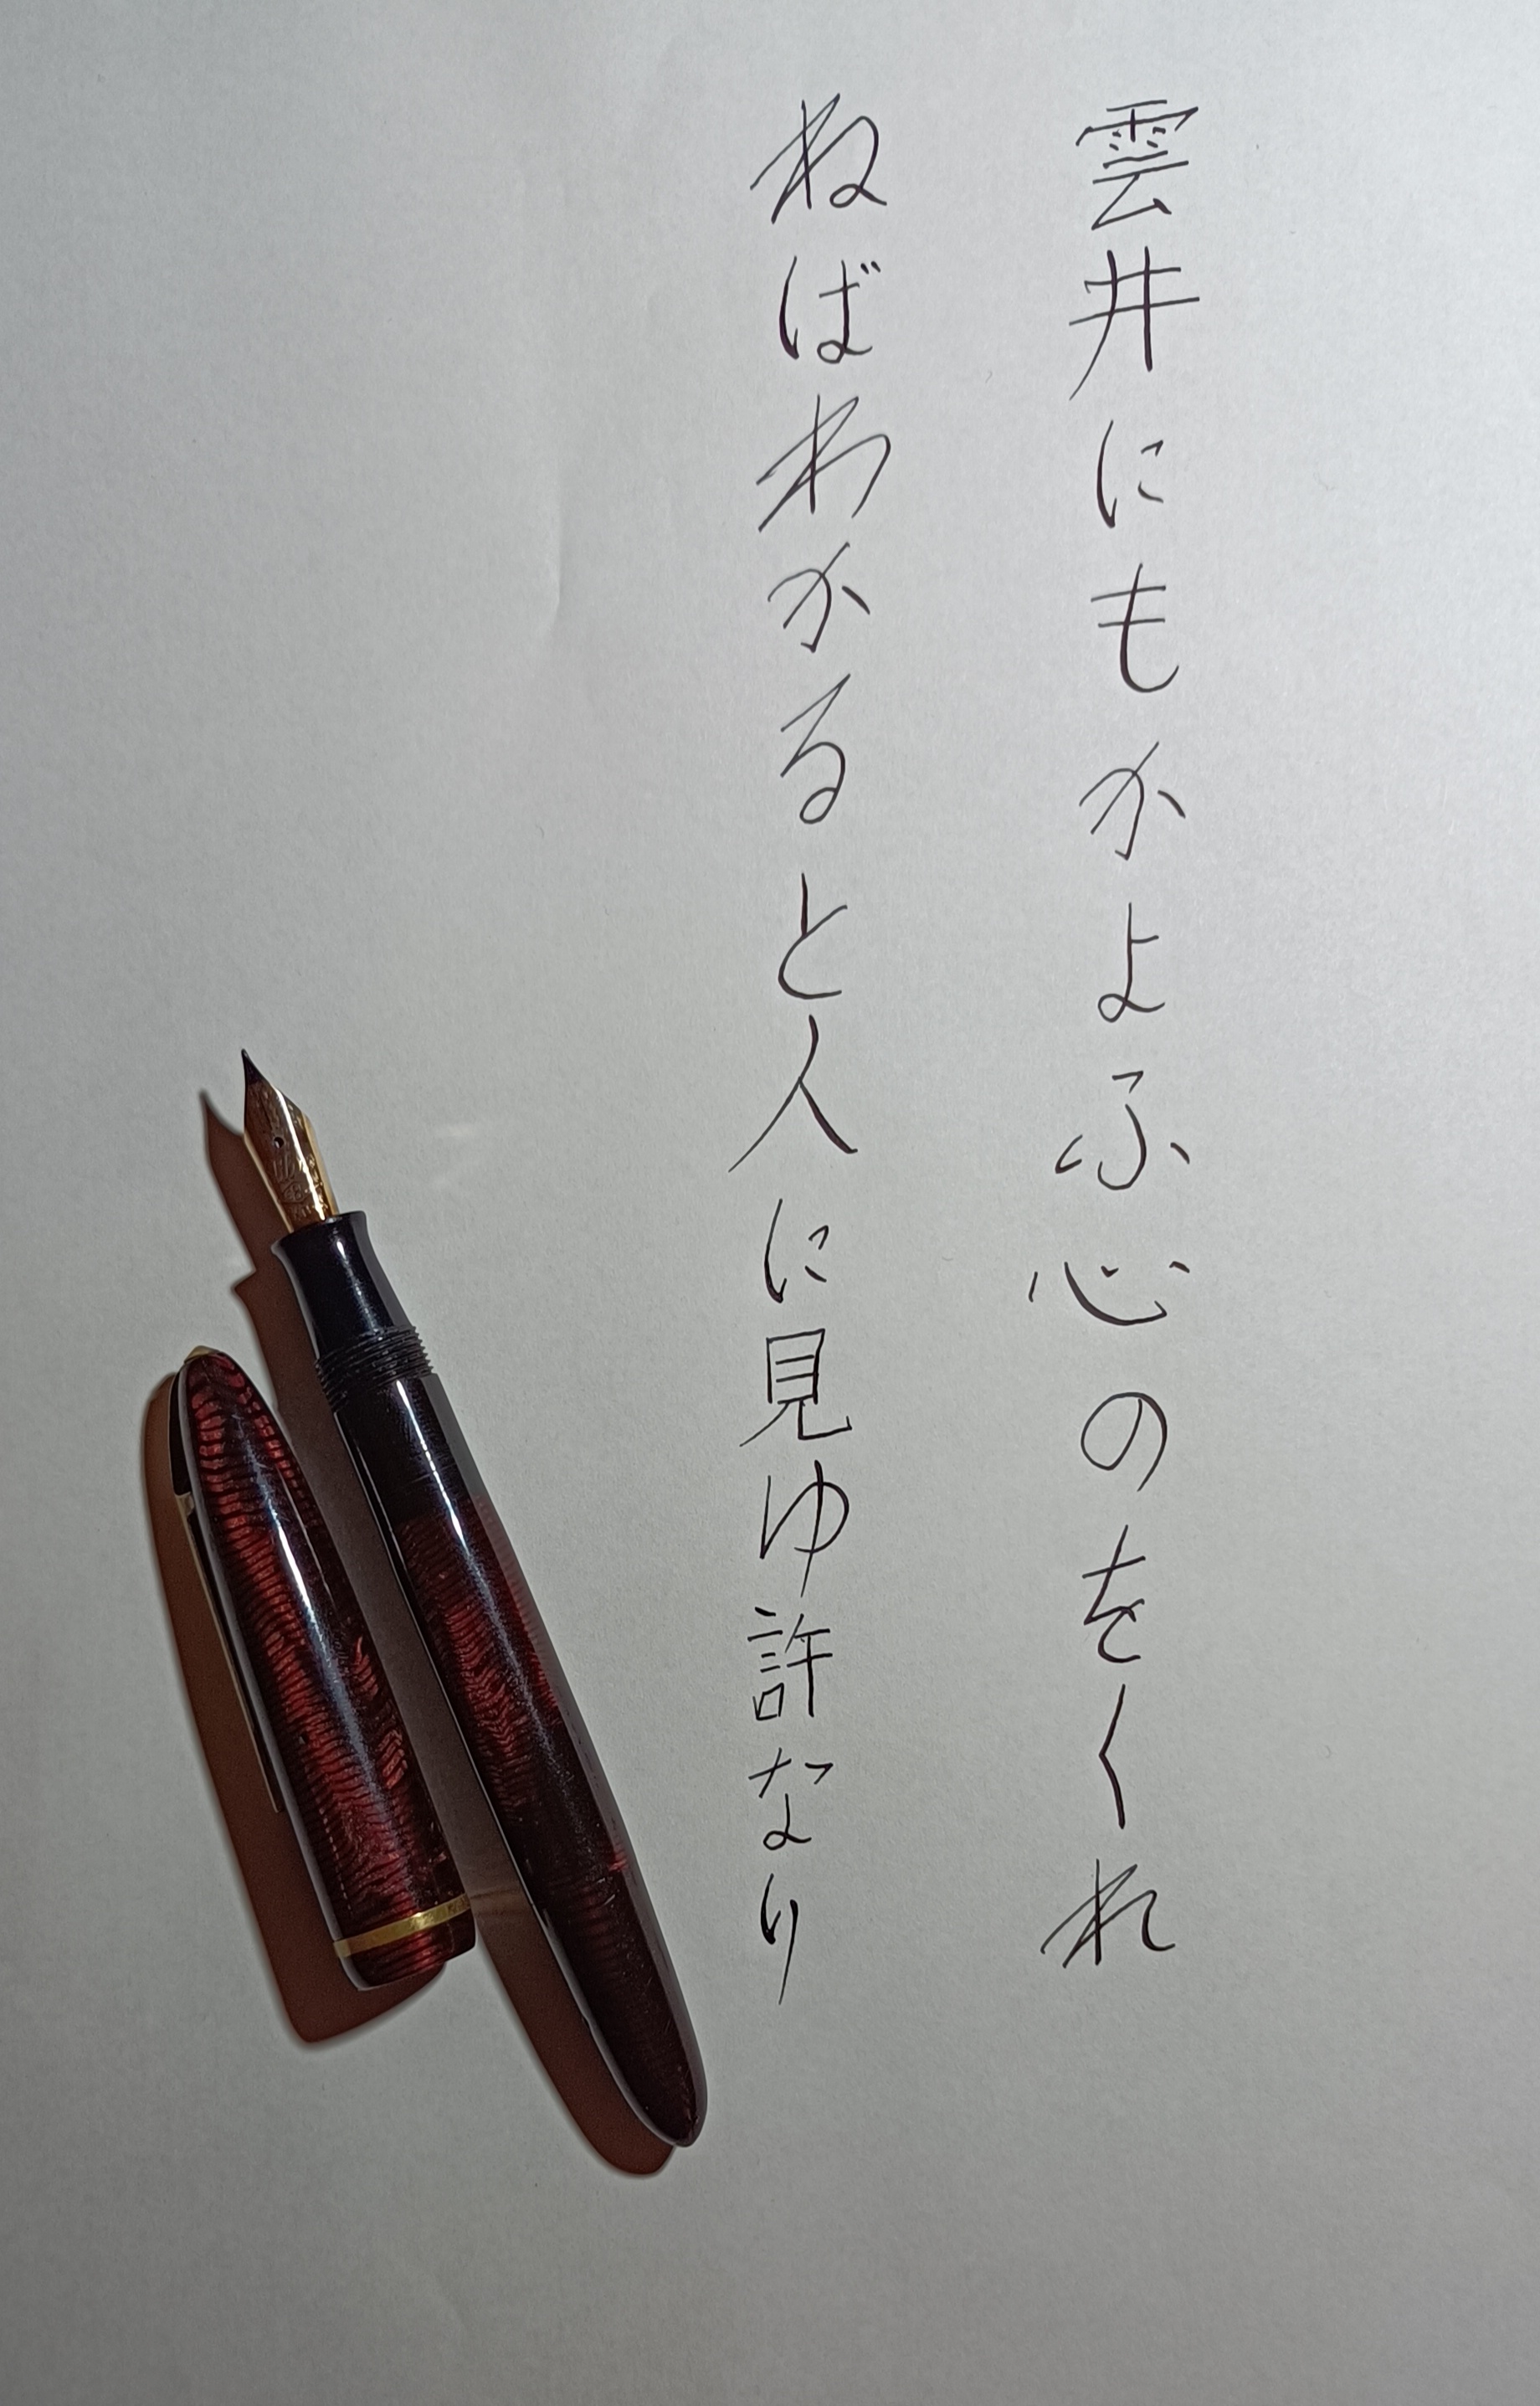 雲井にもかよふ心のをくれ
ねばわかると人に見ゆ許なり